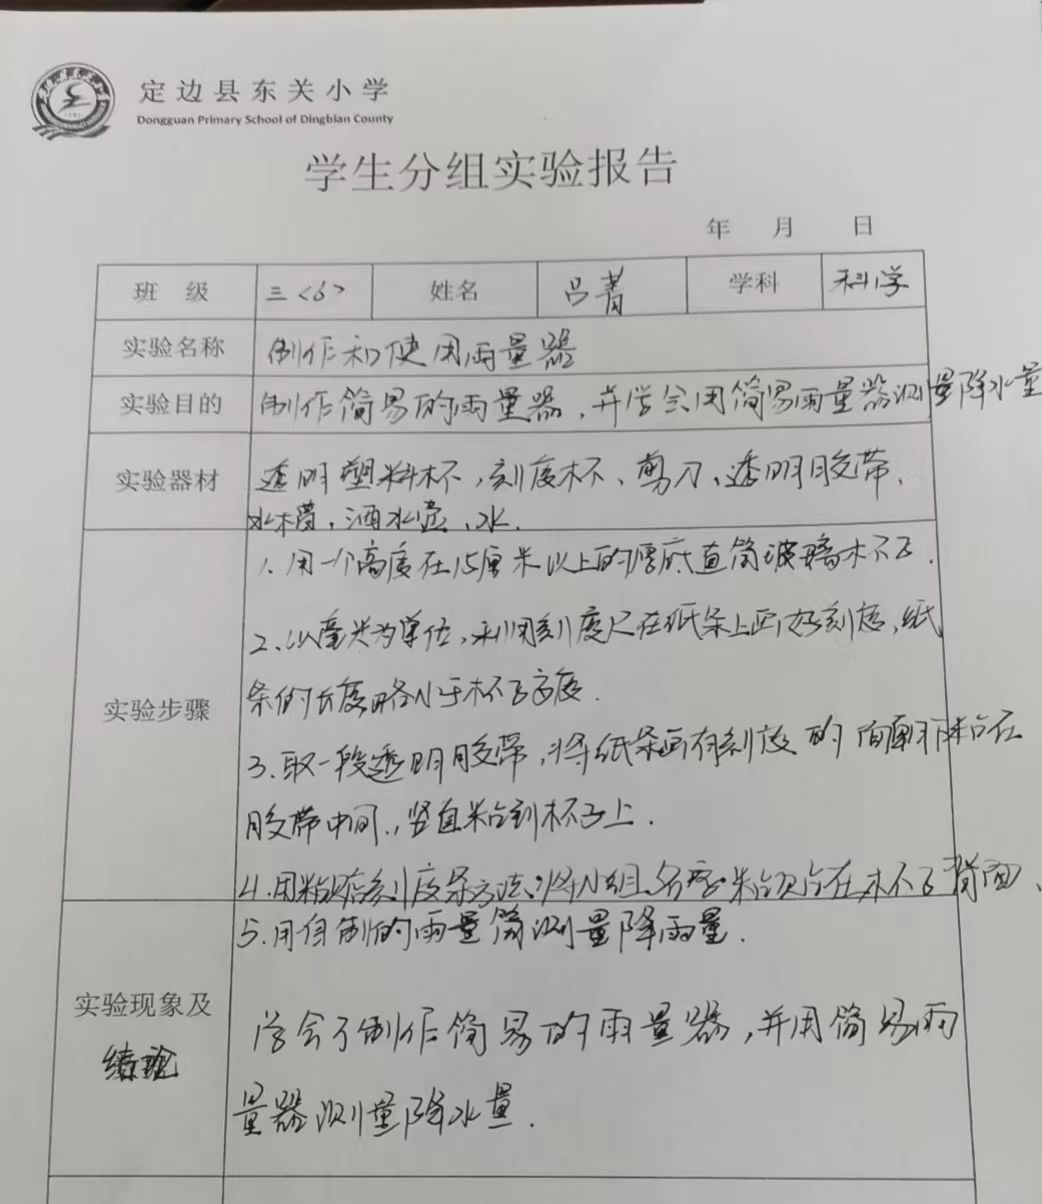 定边县东关小学
Dongguan Primary School of Dingbian County
学生分组实验报告
年 月 日
班 级 三<6> 姓名 吕菁 学科 科学
实验名称 制作和使用雨量器
实验目的 制作简易的雨量器,并学会用简易雨量器测量降水量
实验器材 透明塑料杯,刻度杯、剪刀、透明胶带、
水槽,洒水壶、水.
1、用一个高度在15厘米以上的厚底直筒玻璃杯子.
2、以毫米为单位,利用刻度尺在纸条上画好刻度,纸
条的长度略小于杯子高度.
实验步骤
3.取一段透明胶带,将纸条画有刻度的一面朝下粘在
胶带中间,竖直粘到杯子上.
4.用粘贴刻度条方法,将小组名字粘贴在杯子背面、
5.用自制的雨量筒测量降雨量.
实验现象及
结论
学会了制作简易的雨量器,并用简易雨
量器测量降水量.